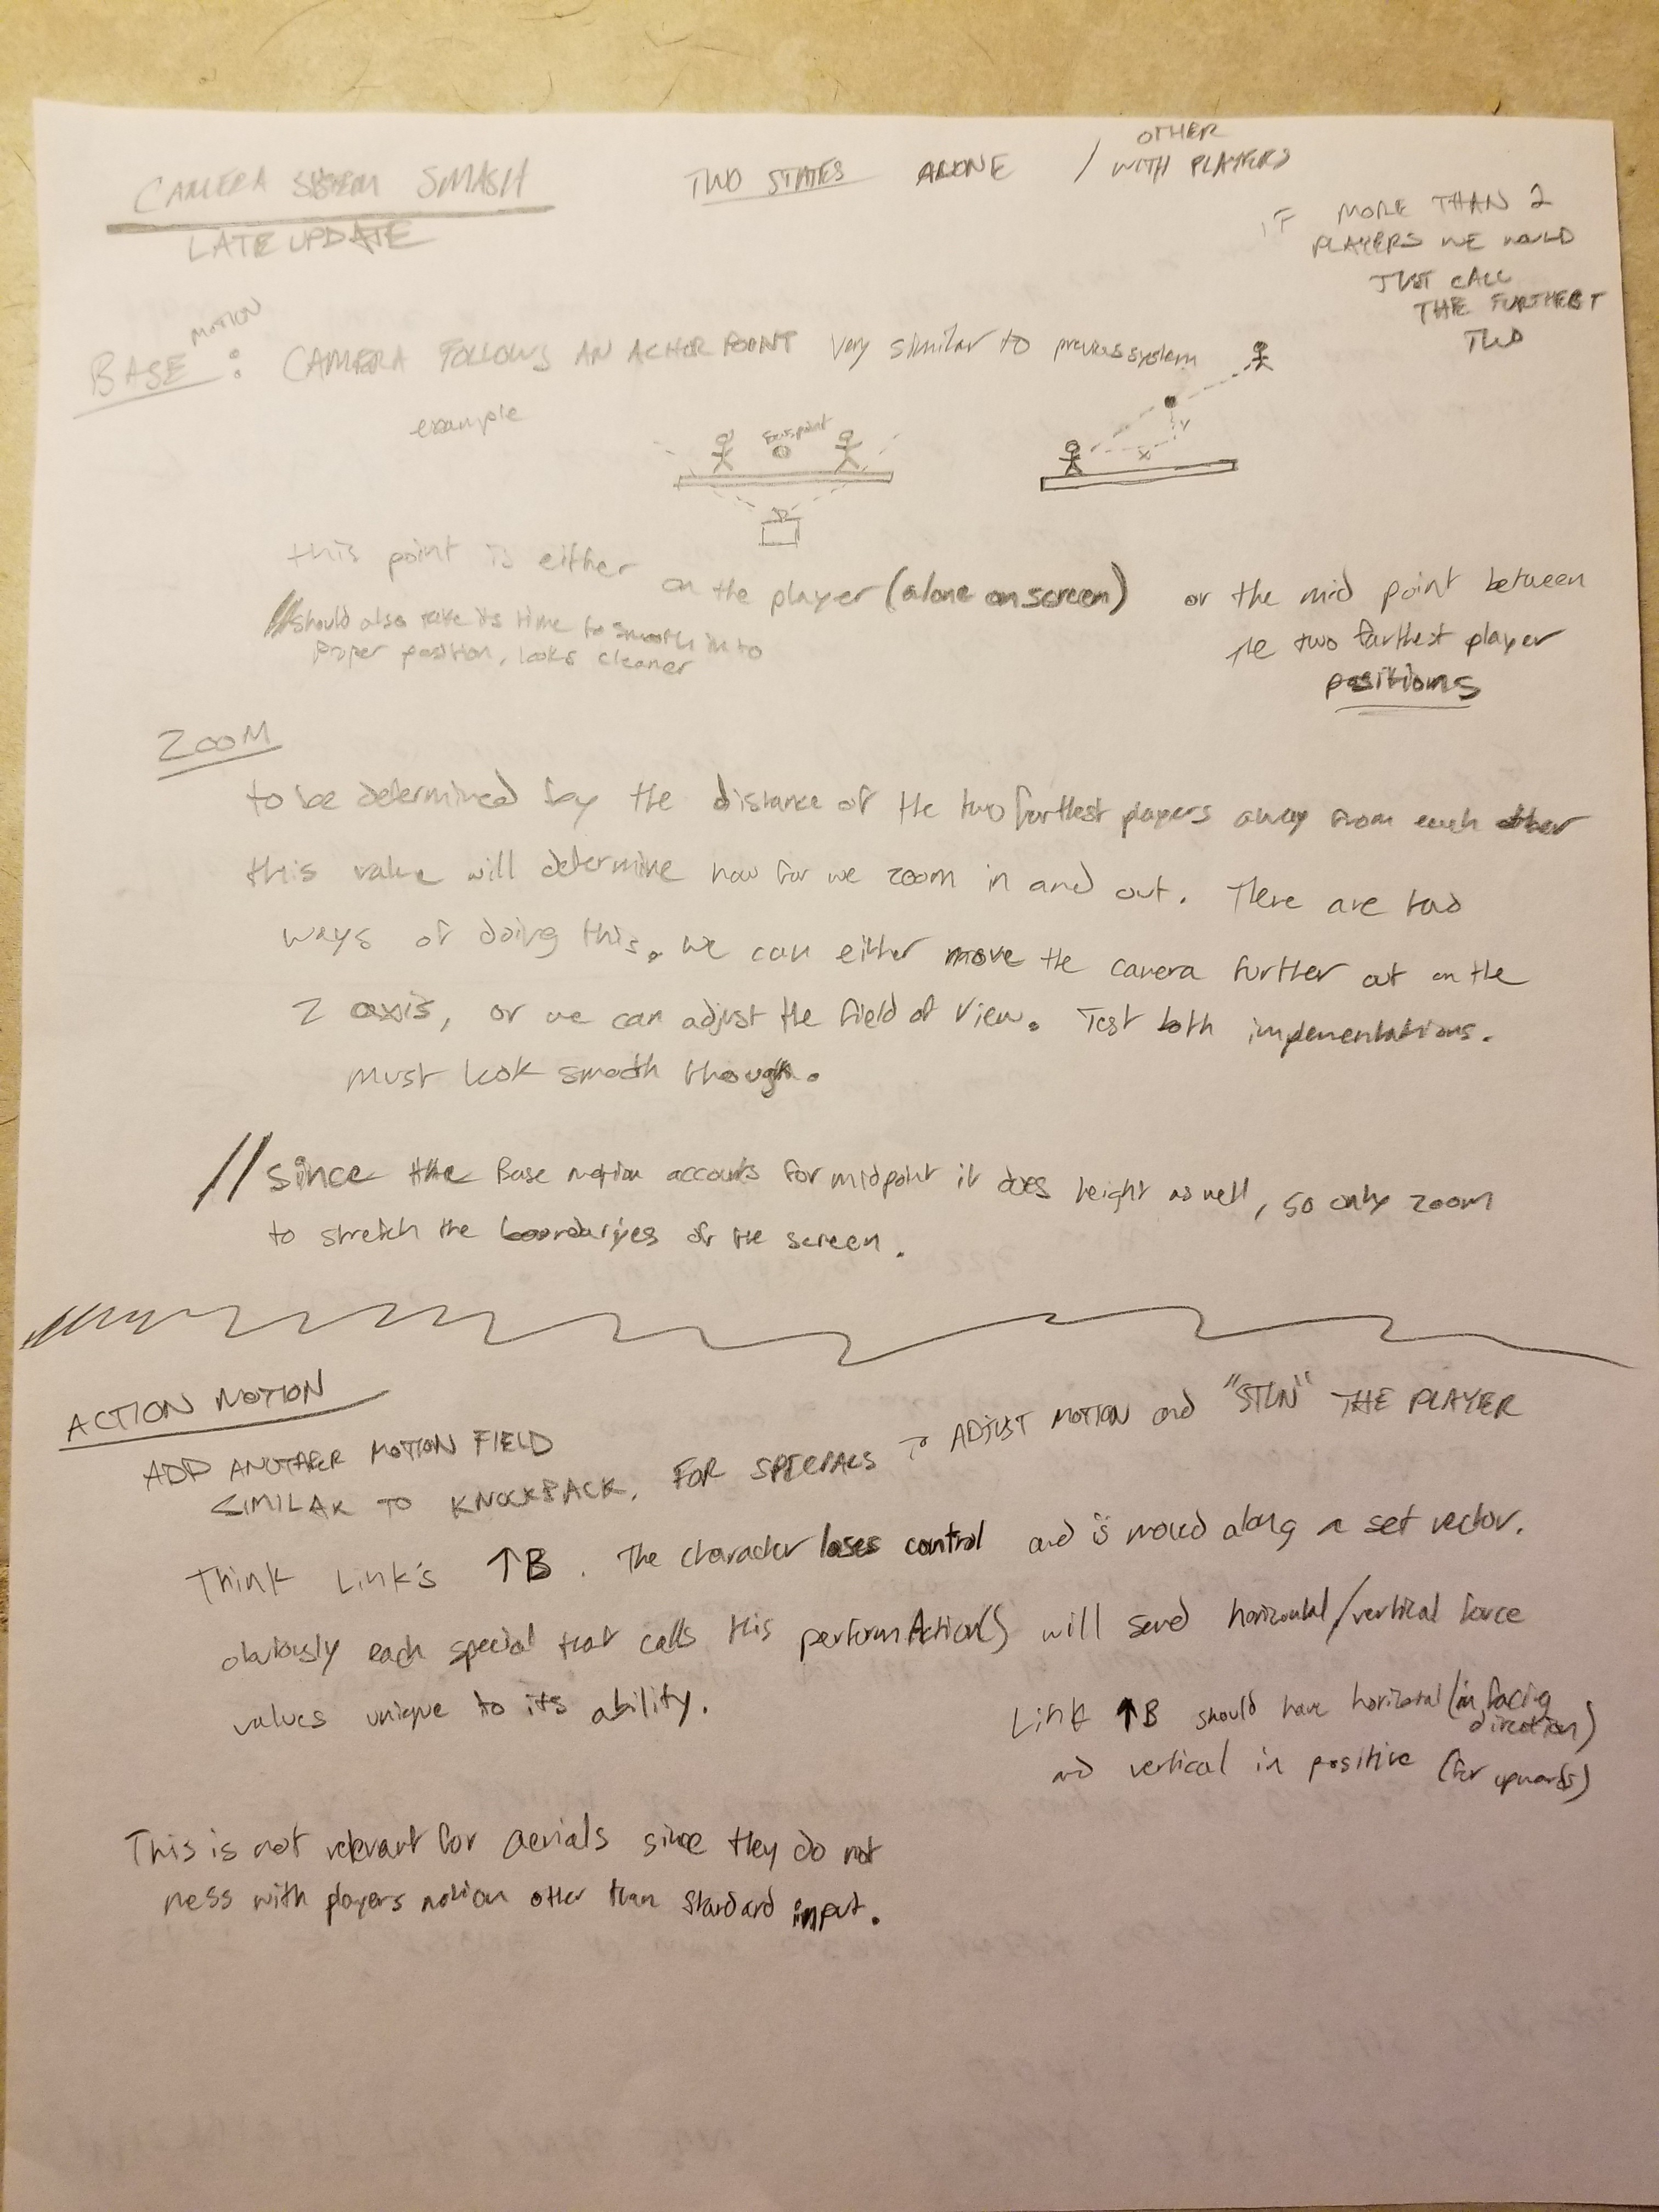 CAMERA SYSTEM SMASH
LATE UPDATE
TWO STATES ALONE / WITH OTHER PLAYERS
IF MORE THAN 2
PLAYERS WE WOULD
JUST CALL
THE FURTHEST
TWO
BASE MOTION : CAMERA FOLLOWS AN ACHOR POINT very similar to previous system
example
focuspoint
x
y
this point is either on the player (alone on screen) or the mid point between
the two farthest player
positions
// should also take its time to smooth in to
proper position, looks cleaner
ZOOM
to be determined by the distance of the two furthest players away from each other
this value will determine how far we zoom in and out. There are two
ways of doing this. we can either move the camera further out on the
Z axis, or we can adjust the field of view. Test both implementations.
must look smooth though.
// since the Base motion accounts for midpoint it does height as well, so only zoom
to stretch the boundaries of the screen.
ACTION MOTION
ADD ANOTHER MOTION FIELD
SIMILAR TO KNOCKBACK, FOR SPECIALS TO ADJUST MOTION and "STUN" THE PLAYER
Think Link's ↑B. The character loses control and is moved along a set vector.
obviously each special that calls this performAction() will send horizontal/vertical force
values unique to its ability.
Link ↑B should have horizontal (in facing
direction)
and vertical in positive (for upwards)
This is not relevant for aerials since they do not
mess with players motion other than standard input.